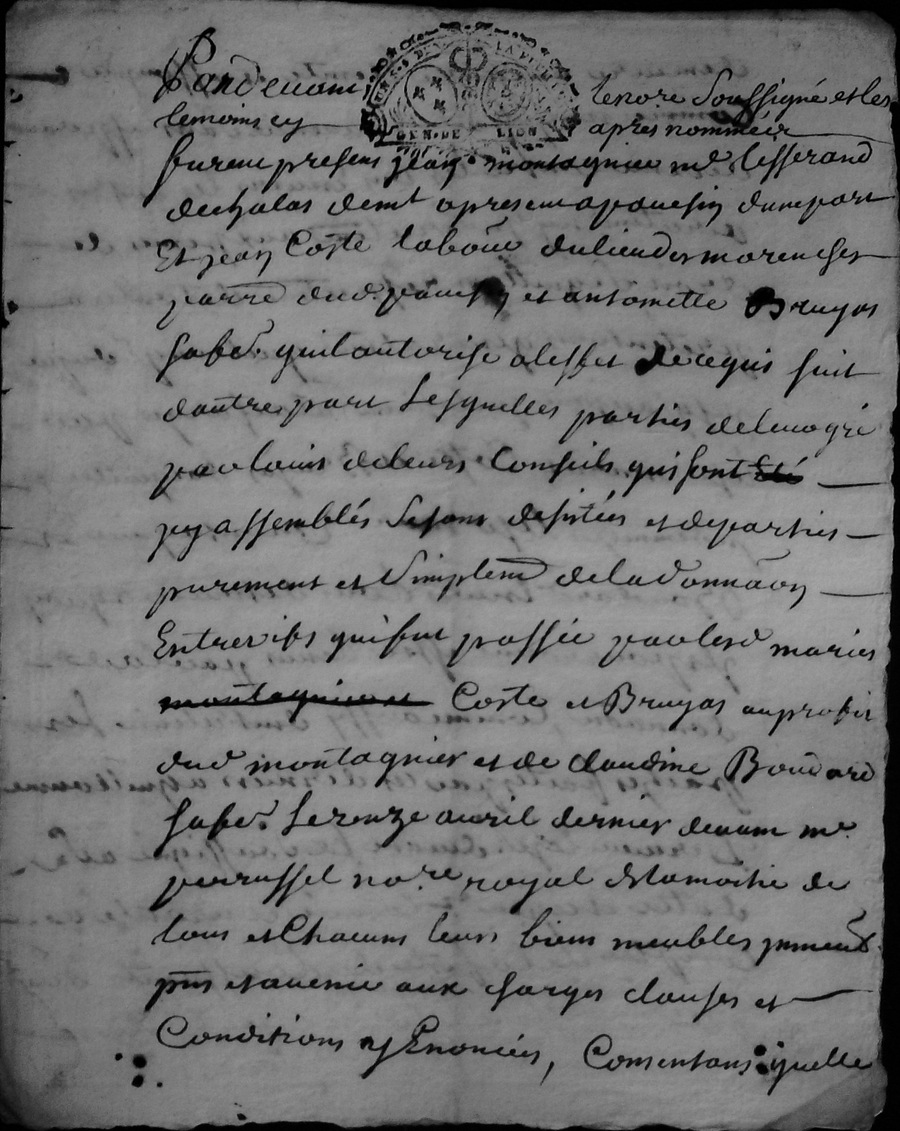 Pardevant le nore soussigné et les
temoins cy apres nommés
GEN. DE LION
furent presens jean montagnier me tisserand
dechalas demt apresent a pauesin dune part
Et jean Coste labour du lieu des
parre dud pauesin et antoinette Bruyas
safe. quil autorise aleffet de cequi suit
dautre part Lesquelles parties deleur gré
par lavis deleurs Conseils qui sont
jcy assemblés Sesont desistées et departies
purement et Simplemt deladonnaon
Entrevifs quifut passée par lesd mariés
montagnier et Coste et Bruyas auprofit
dud montagnier et de claudine Bouard
safe. Le onze avril dernier devant me.
perrussel nore royal delamoitié de
tous et Chacuns leurs biens meubles jmmeub
pns et avenir aux charges clauses et
Conditions y Enoncées, Consentans quelle